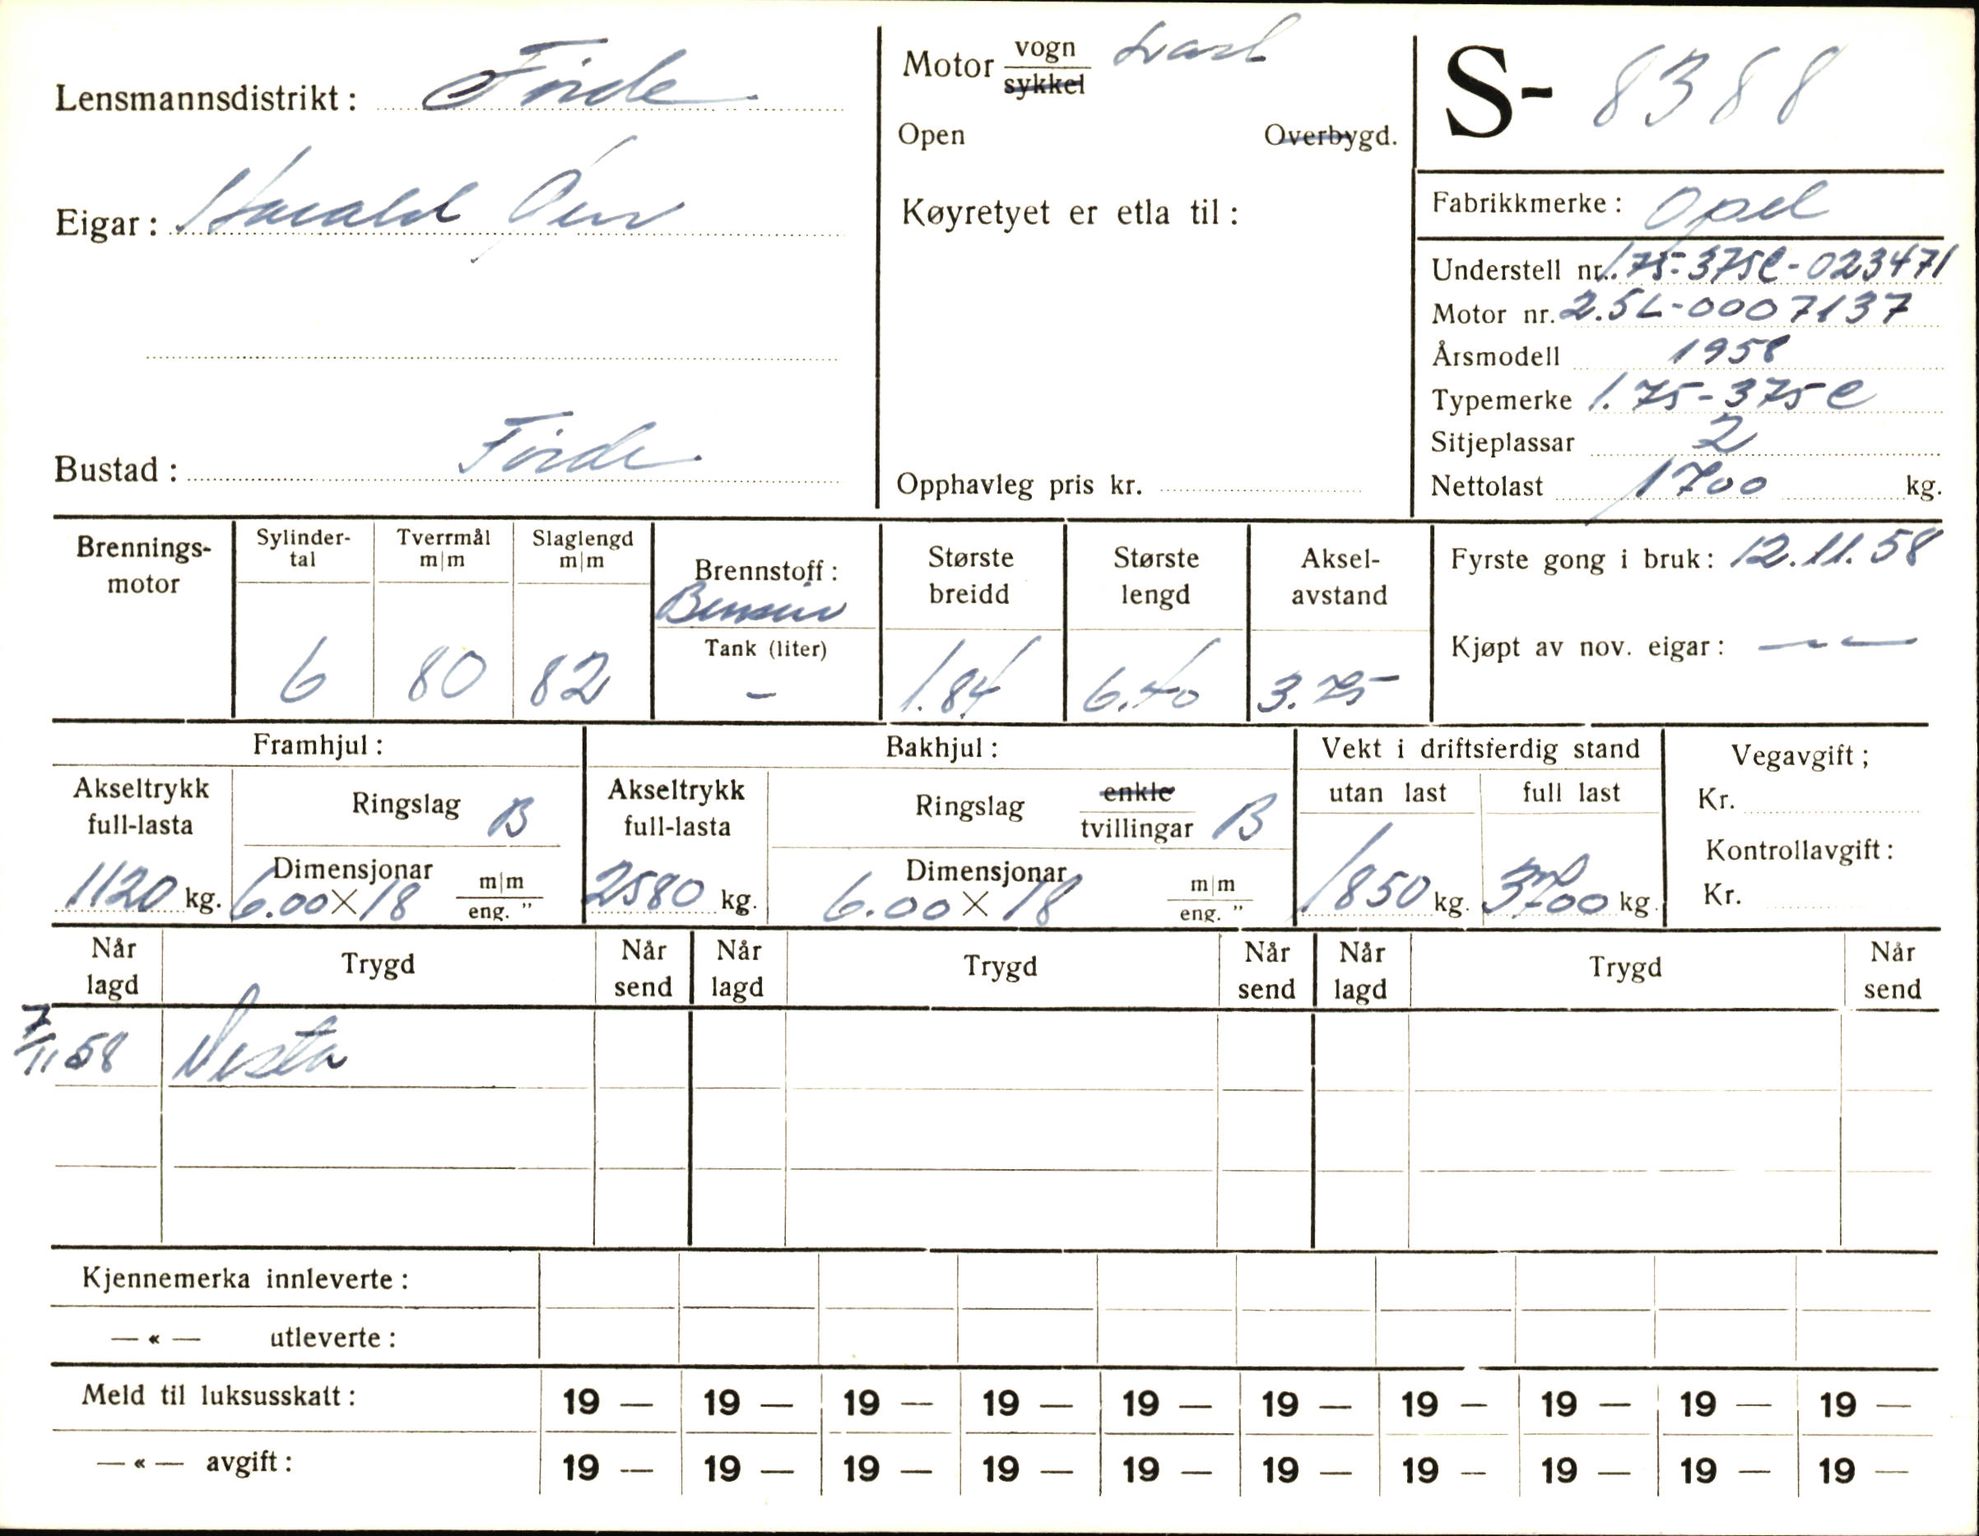 Lensmannsdistrikt: Førde
Eigar: Harald Øen
Bustad: Førde
Motor vogn
sykkel
Open Overbygd.
Køyretyet er etla til:
Opphavleg pris kr.
S- 8388
Fabrikkmerke: Opel
Understell nr. 1.75-375C-023471
Motor nr. 2.5L-0007137
Årsmodell 1958
Typemerke 1.75-375C
Sitjeplassar 2
Nettolast 1700 kg.
Brennings-
motor
Sylinder-
tal
6
Tverrmål
m|m
80
Slaglengd
m|m
82
Brennstoff:
Bensin
Tank (liter)
–
Største
breidd
1.84
Største
lengd
6.40
Aksel-
avstand
3.75
Fyrste gong i bruk: 12.11.58
Kjøpt av nov. eigar: — —
Framhjul:
Akseltrykk
full-lasta
1120 kg.
Ringslag B
Dimensjonar
6.00 X 18
m|m
eng. "
Bakhjul:
Akseltrykk
full-lasta
2580 kg.
Ringslag enkle
tvillingar B
Dimensjonar
6.00 X 18
m|m
eng. "
Vekt i driftsferdig stand
utan last full last
1850 kg. 3700 kg.
Vegavgift;
Kr.
Kontrollavgift:
Kr.
Når
lagd
Trygd
Når
send
Når
lagd
Trygd
Når
send
Når
lagd
Trygd
Når
send
7/11 58 Vesta
Kjennemerka innleverte:
— « — utleverte:
Meld til luksusskatt: 19 — 19 — 19 — 19 — 19 — 19 — 19 — 19 — 19 — 19 —
— « — avgift: 19 — 19 — 19 — 19 — 19 — 19 — 19 — 19 — 19 — 19 —